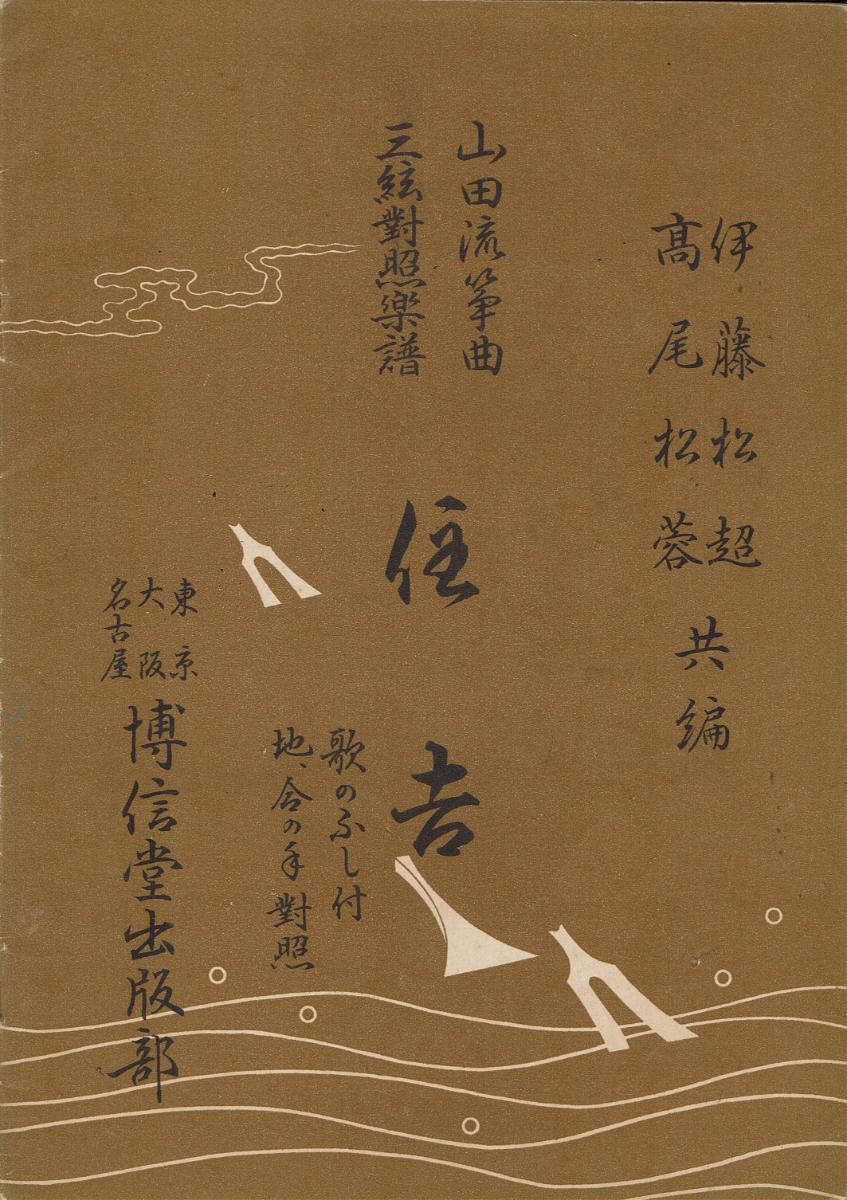 伊藤松超
高尾松蓉
共編
山田流箏曲
三絃對照楽譜
住吉
歌のふし付
地、合の手對照
東京
大阪
名古屋
博信堂出版部